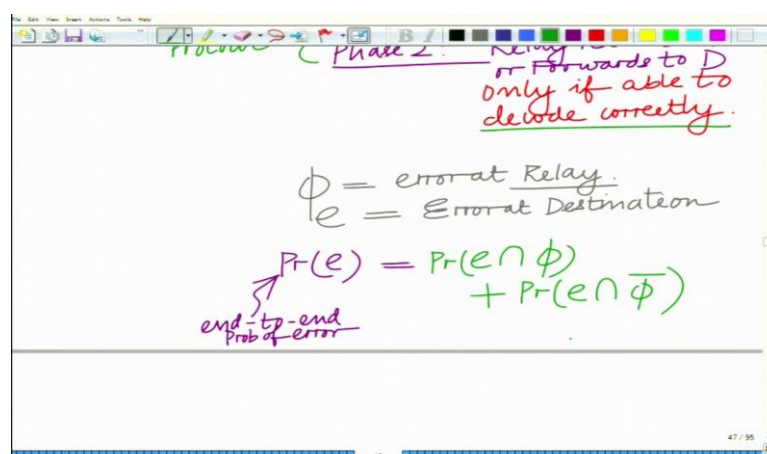 File Edit View Insert Actions Tools Help
Protocol ( Phase 2:
or Forwards to D
only if able to
decode correctly.
Φ = error at Relay.
e = Error at Destination
Pr(e) = Pr(e ∩ Φ)
+ Pr(e ∩ Φ̅)
end-to-end
Prob of error
47 / 95